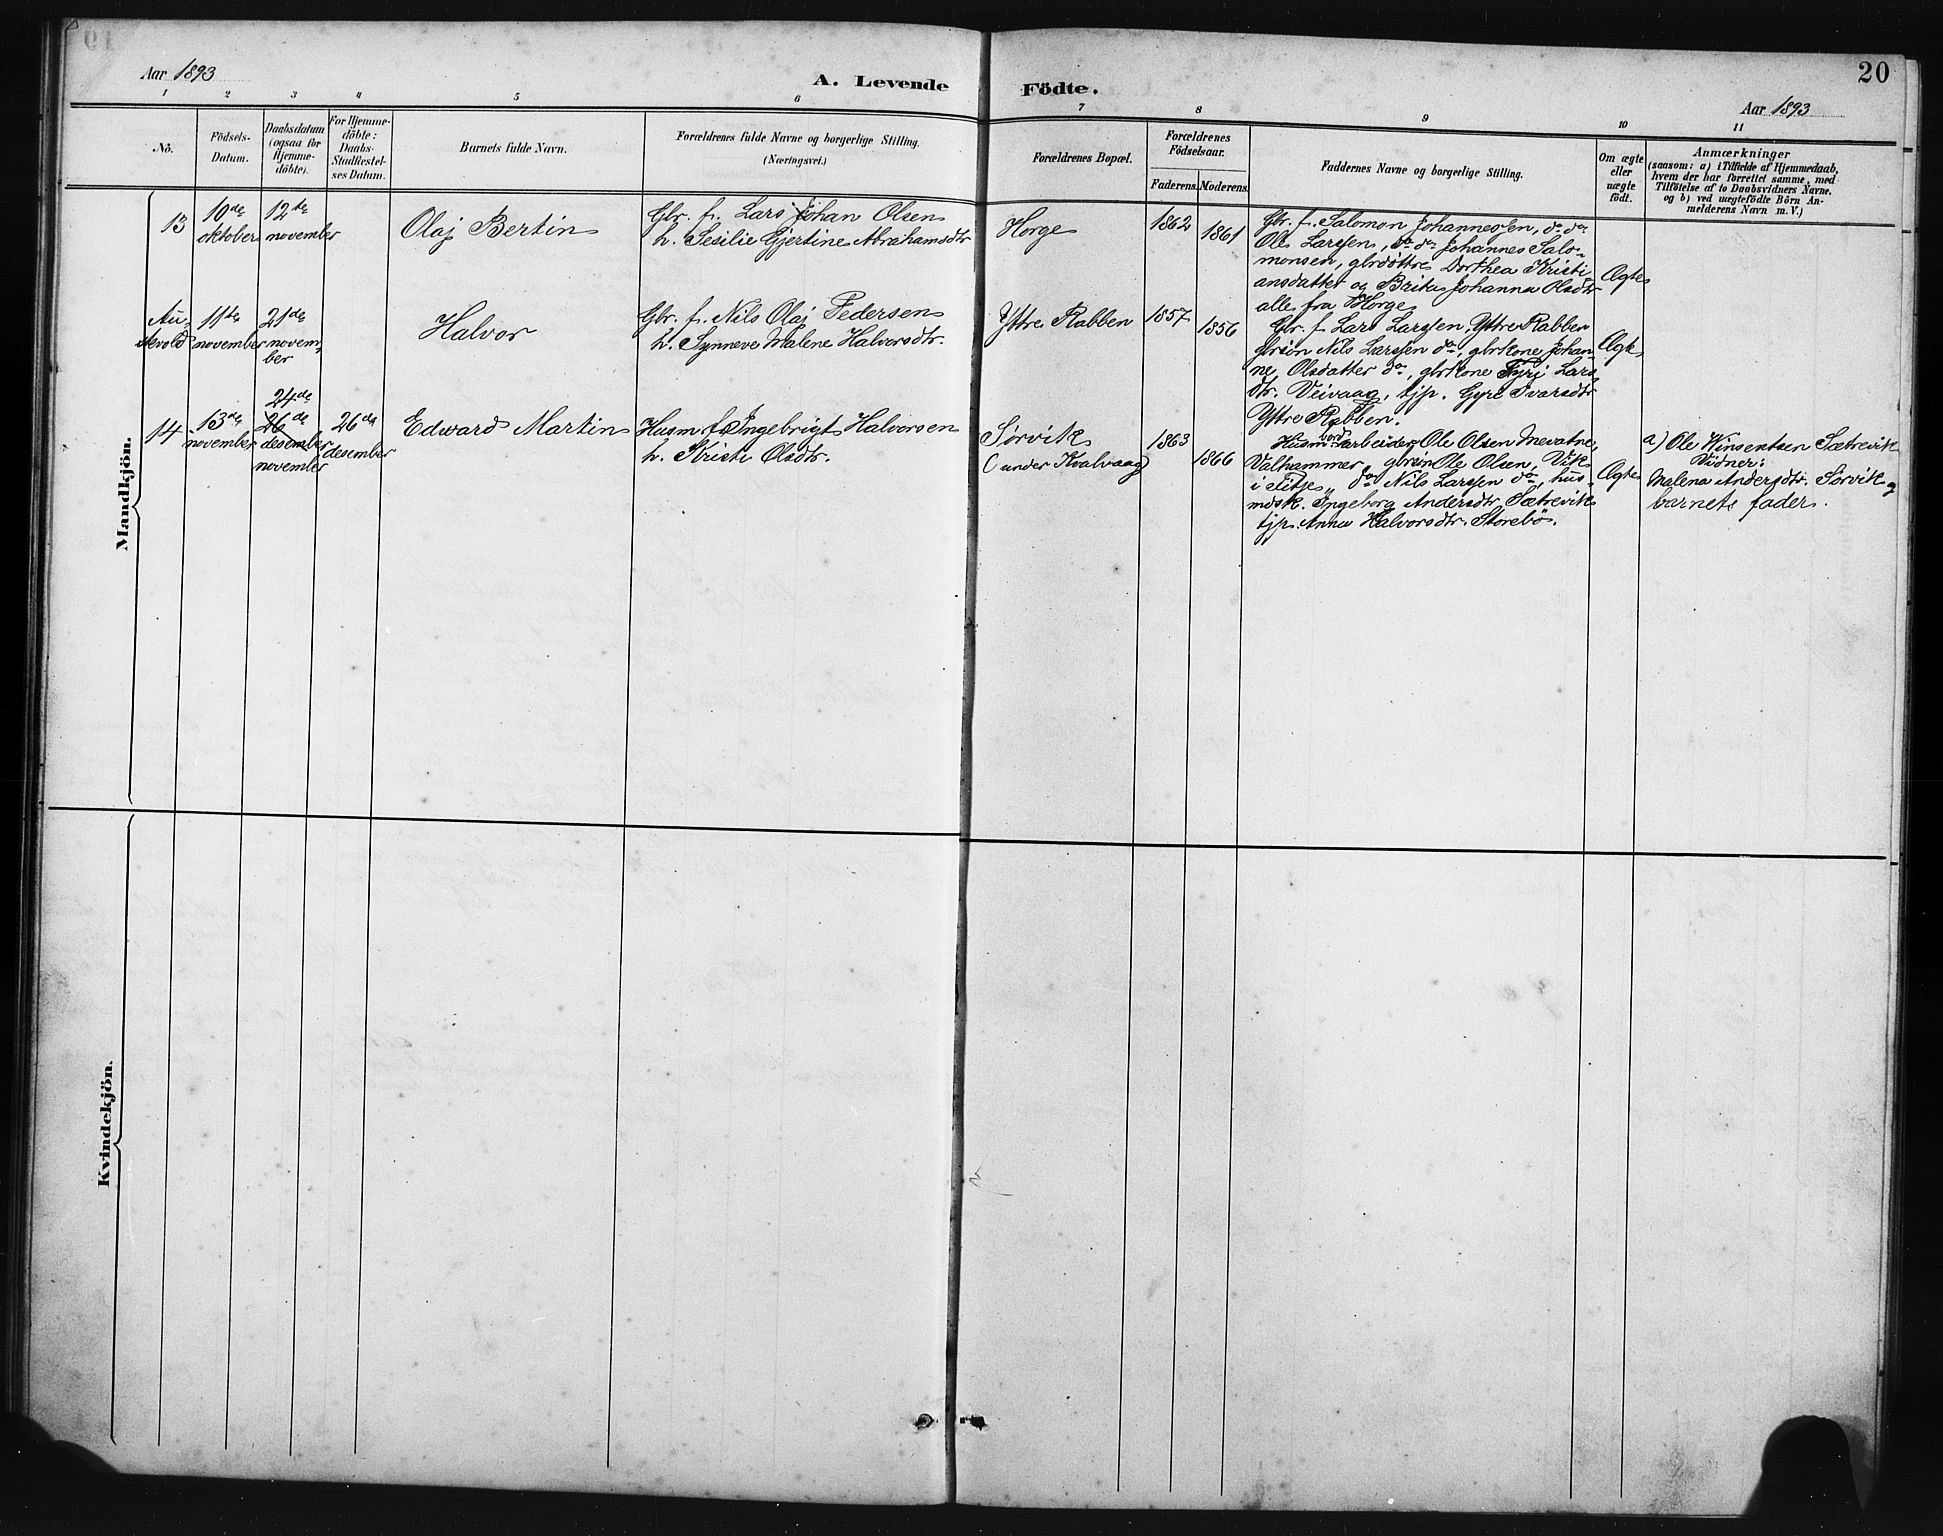 20
Aar 1893
A. Levende Födte.
Aar 1893
1 2 3 4 5 6 7 8 9 10 11
No.
Födsels-
Datum.
Daabsdatum
(ogsaa for
Hjemme-
döbte).
For Hjemme-
döbte:
Daabs-
Stadfæstel-
ses Datum.
Barnets fulde Navn.
Forældrenes fulde Navne og borgerlige Stilling.
(Næringsvei.)
Forældrenes Bopæl.
Forældrenes
Födselsaar.
Faderens. Moderens.
Faddernes Navne og borgerlige Stilling.
Om ægte
eller
uægte
födt.
Anmærkninger
(saasom: a) i Tilfælde af Hjemmedaab,
hvem der har forrettet samme, med
Tilföielse af to Daabsvidners Navne,
og b) ved uægtefödte Börn An-
melderens Navn m. V.)
Mandkjön.
13
10de
oktober
12te
november
Olaj Bertin
Gbr. f. Lars Johan Olsen
h. Sesilie Gjertine Abrahamsdtr
Horge
1862
1861
Gbr. f. Salomon Johannessen, do do
Ole Larssen, do do Johannes Salo-
monsen, gbrdøttre Dorthea Kristi-
ansdatter og Brita Johanna Olsdtr
alle fra Horge
Ægte
Au-
stevold
11te
november
21de
novem-
ber
Halvor
Gbr. f. Nils Olaj Pedersen
h. Synneve Malene Halvorsdtr.
Ytre Rabben
1857
1856
Gbr. f. Lars Larssen, Ytre Rabben
gbrsøn Nils Larssen do, gbrkone Johan-
ne Olsdatter do, gbrkone Lars
dtr. Veivaag, tjp. Gyri Ivarsdtr
Ytre Rabben.
Ægte
14
13de
november
24de
26de
desember
november
26de
desember
Edward Martin
Husm. f. Ingebrigt Halvorsen
h. Kristi Olsdtr.
Sørvik
(under Kvalvaag)
1863
1866
Husm. arbeider Ole Olsen Mevatne,
Valhammer, gbrsøn Ole Olsen, Vik
i Fitje, do Nils Larssen do, hus-
mdsk. Ingeborg Andersdtr. Sætrevik
tjp. Anna Halvorsdtr. Storebö.
Ægte
a) Ole Winsentsen Sætrevik
Vidner:
Malena Andersdtr. Sørvik og
barnets fader.
Kvindekjön.